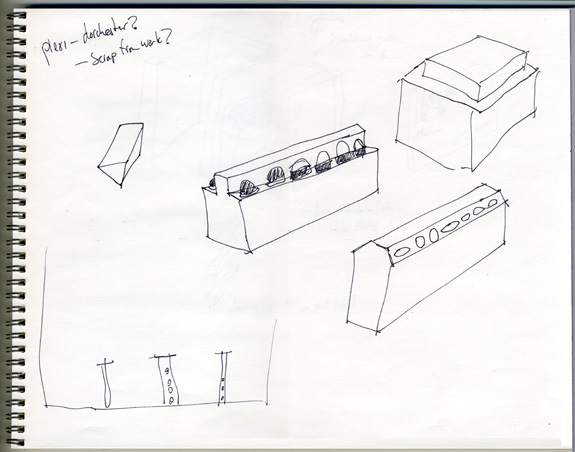 plexi - dorchester?
- scrap from work?